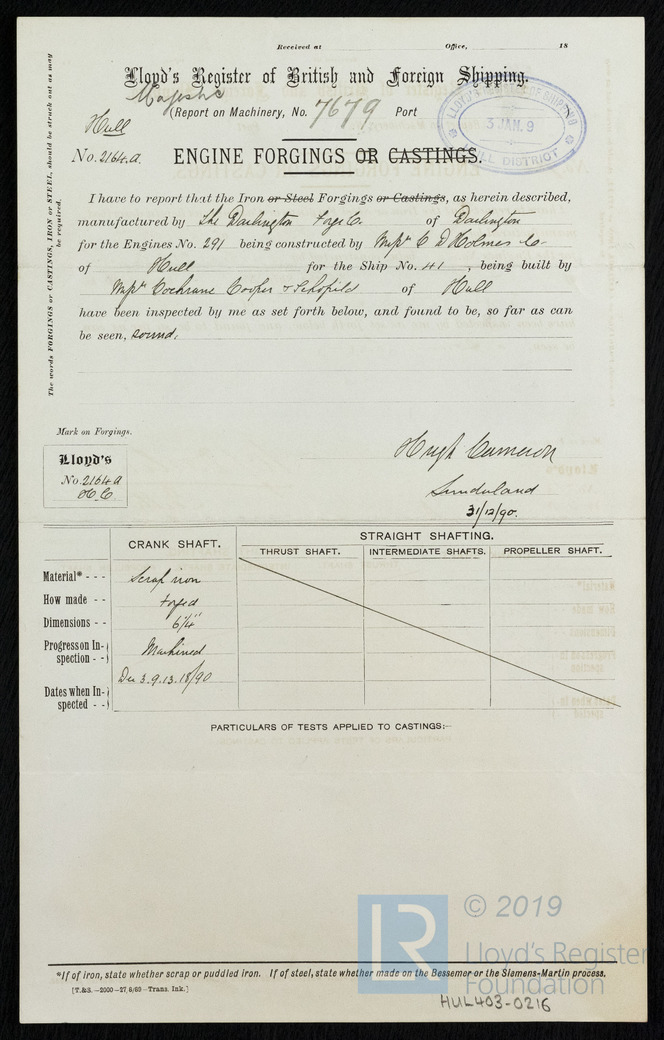 Received at Office, 18
Lloyd's Register of British and Foreign Shipping.
Majestic
(Report on Machinery, No. 7679 Port
LLOYD'S REGISTER OF SHIPPING
3 JAN. 9
HULL DISTRICT
Hull
No. 2164.a. ENGINE FORGINGS OR CASTINGS.
I have to report that the Iron or Steel Forgings or Castings, as herein described,
manufactured by The Darlington Forge Co. of Darlington
for the Engines No. 291 being constructed by Messrs C D Holmes & Co
of Hull for the Ship No. 41, being built by
Messrs Cochrane Cooper & Schofield of Hull
have been inspected by me as set forth below, and found to be, so far as can
be seen, sound.
The words FORGINGS or CASTINGS, IRON or STEEL, should be struck out as may
be required.
Mark on Forgings.
Lloyd's
No. 2164a
H.C.
Hugh Cameron
Sunderland
31/12/90.
CRANK SHAFT. STRAIGHT SHAFTING.
THRUST SHAFT. INTERMEDIATE SHAFTS. PROPELLER SHAFT.
Material* - - - Scrap iron
How made - - Forged
Dimensions - - 6¼"
Progress on In-
spection - - Machined
Dates when In-
spected - - Dec 3.9.13.18/90
PARTICULARS OF TESTS APPLIED TO CASTINGS:—
*If of iron, state whether scrap or puddled iron. If of steel, state whether made on the Bessemer or the Siemens-Martin process.
[T.&S.—2000—27/8/88—Trans. Ink.]
LR
© 2019
Lloyd's Register
Foundation
HUL403-0216